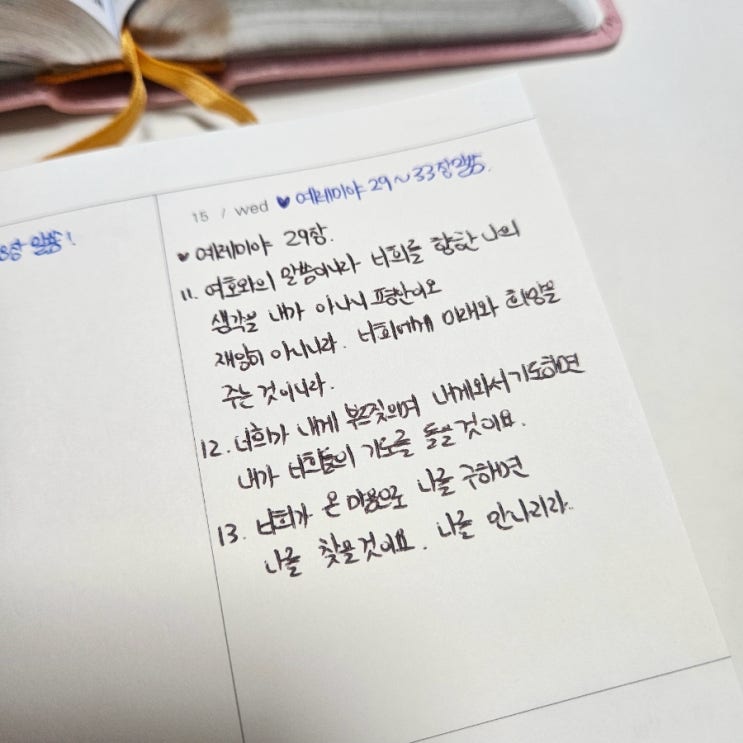 말씀!
15 / wed ♥ 예레미야 29~33장 말씀.
♥ 예레미야 29장.
11. 여호와의 말씀이니라 너희를 향한 나의
생각을 내가 아나니 평안이요
재앙이 아니니라. 너희에게 미래와 희망을
주는 것이니라.
12. 너희가 내게 부르짖으며 내게 와서 기도하면
내가 너희들의 기도를 들을 것이요.
13. 너희가 온 마음으로 나를 구하면
나를 찾을 것이요. 나를 만나리라.